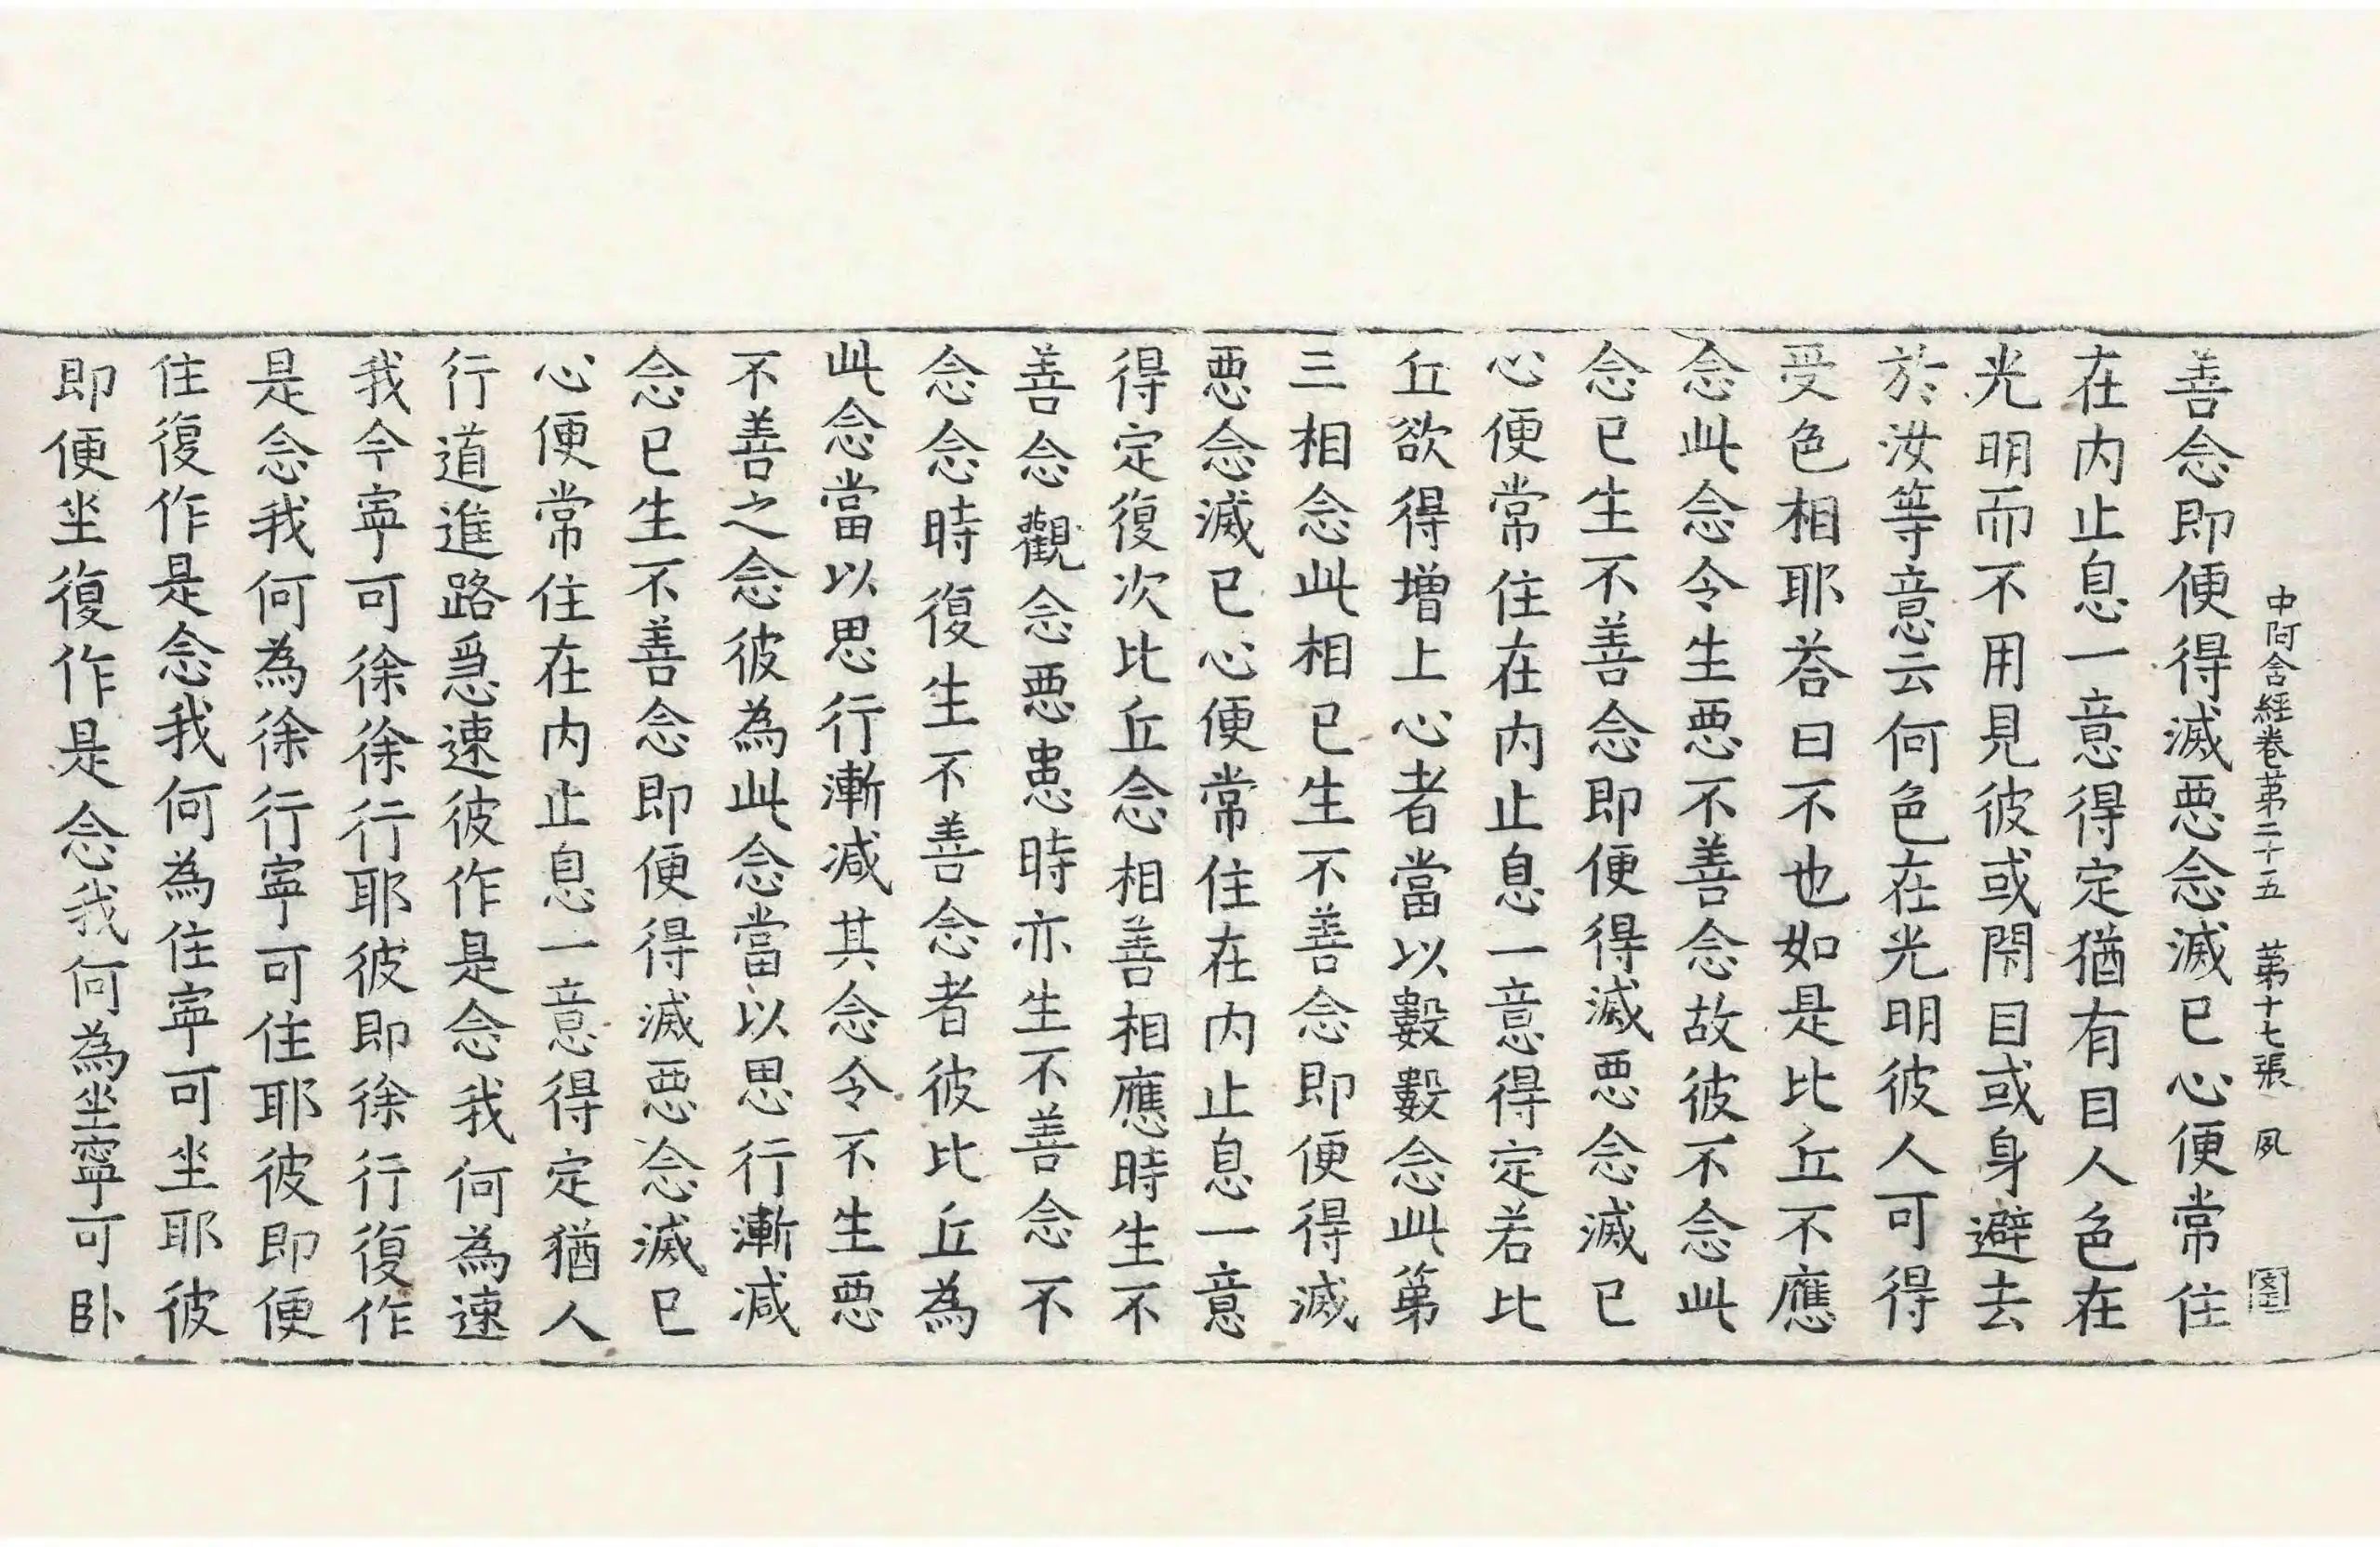 中阿含經卷第二十五　第十七張　夙
善念即便得滅惡念滅已心便常住
在内止息一意得定猶有目人色在
光明而不用見彼或閇目或身避去
於汝等意云何色在光明彼人可得
受色相耶荅曰不也如是比丘不應
念此念令生惡不善念故彼不念此
念已生不善念即便得滅惡念滅已
心便常住在内止息一意得定若比
丘欲得增上心者當以數數念此第
三相念此相已生不善念即便得滅
惡念滅已心便常住在内止息一意
得定復次比丘念相善相應時生不
善念觀念惡患時亦生不善念不
念念時復生不善念者彼比丘為
此念當以思行漸減其念令不生惡
不善之念彼為此念當以思行漸減
念已生不善念即便得滅惡念滅已
心便常住在内止息一意得定猶人
行道進路急速彼作是念我何為速
我今寧可徐徐行耶彼即徐行復作
是念我何為徐行寧可住耶彼即便
住復作是念我何為住寧可坐耶彼
即便坐復作是念我何為坐寧可卧